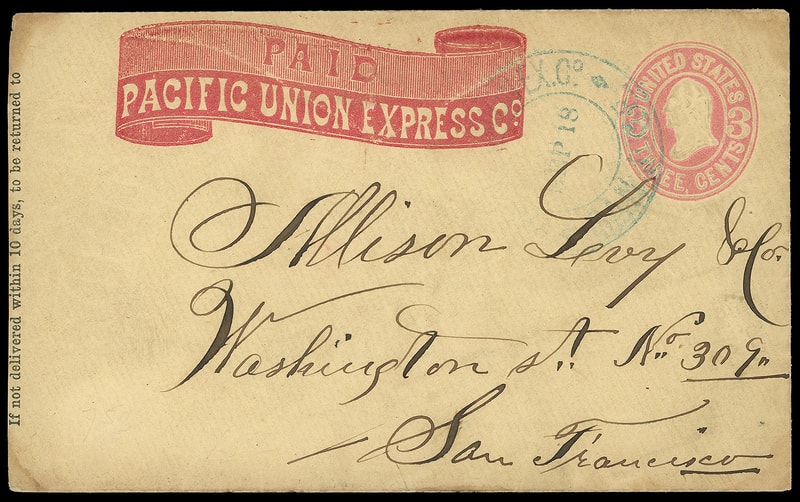 If not delivered within 10 days, to be returned to
PAID
PACIFIC UNION EXPRESS Co
EX. Co
SEP 18
UNITED STATES
3 3
THREE CENTS
Allison Levy & Co.
Washington st. No. 309
San Francisco